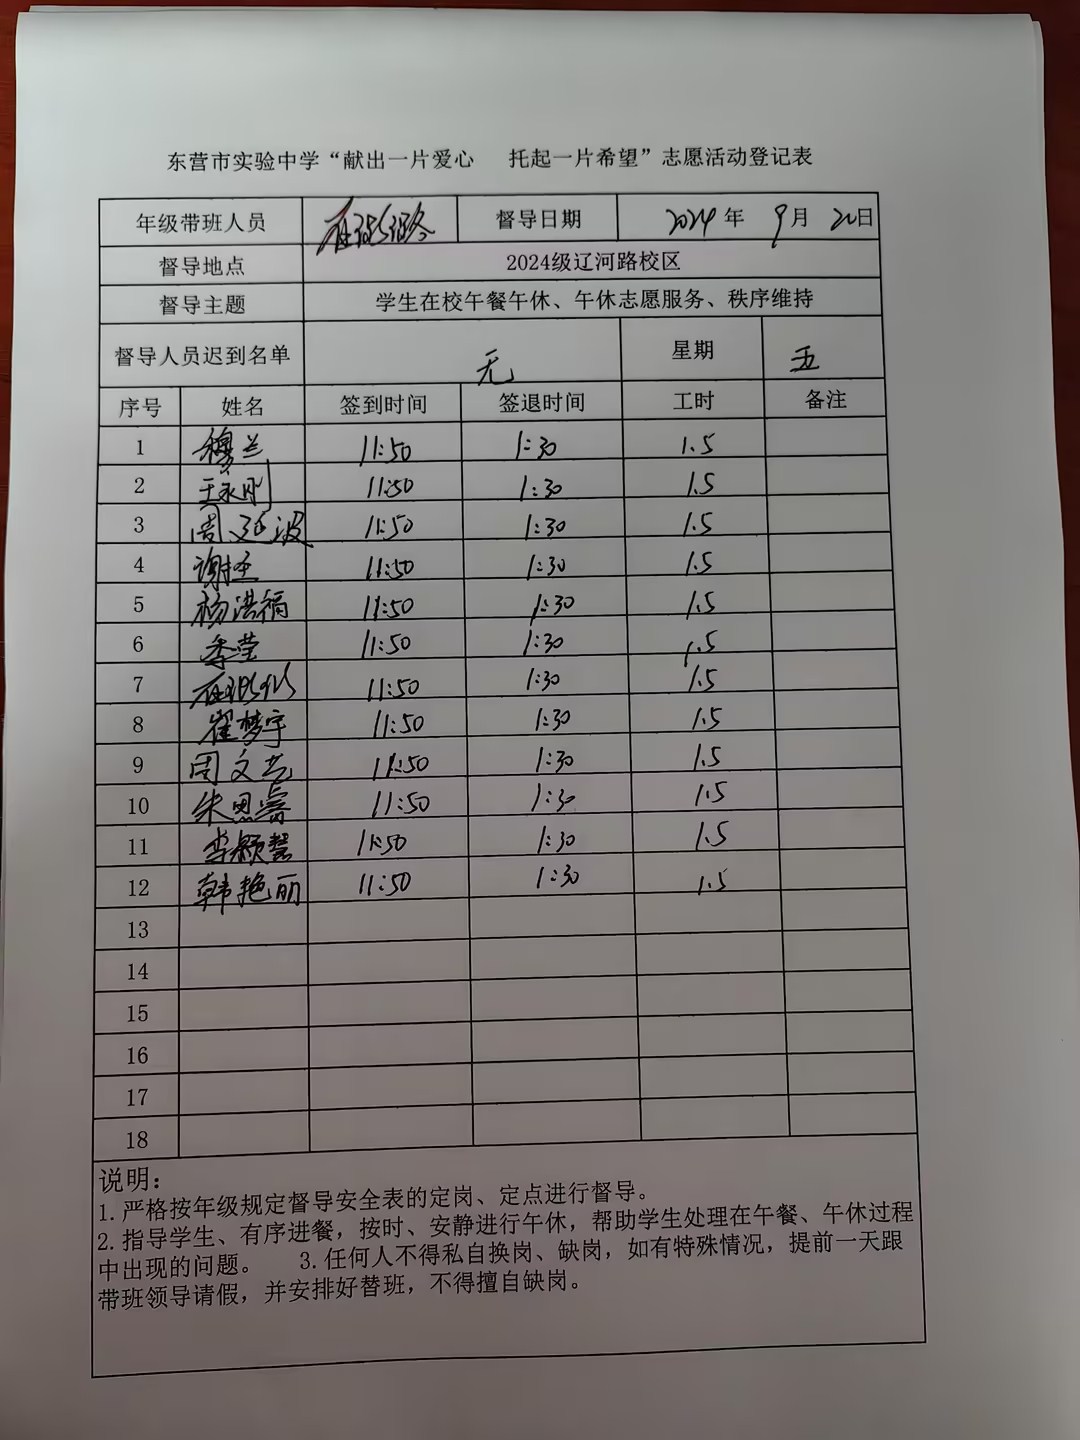 东营市实验中学“献出一片爱心 托起一片希望”志愿活动登记表
年级带班人员 督导日期 2024年 9月 20日
督导地点 2024级辽河路校区
督导主题 学生在校午餐午休、午休志愿服务、秩序维持
督导人员迟到名单 无 星期 五
序号 姓名 签到时间 签退时间 工时 备注
1 穆兰 11:50 1:30 1.5
2 王永刚 11:50 1:30 1.5
3 周延波 11:50 1:30 1.5
4 11:50 1:30 1.5
5 杨洪福 11:50 1:30 1.5
6 季莹 11:50 1:30 1.5
7 11:50 1:30 1.5
8 崔梦宇 11:50 1:30 1.5
9 周文 11:50 1:30 1.5
10 朱恩睿 11:50 1:30 1.5
11 李颖慧 11:50 1:30 1.5
12 韩艳丽 11:50 1:30 1.5
13
14
15
16
17
18
说明：
1.严格按年级规定督导安全表的定岗、定点进行督导。
2.指导学生、有序进餐，按时、安静进行午休，帮助学生处理在午餐、午休过程
中出现的问题。 3.任何人不得私自换岗、缺岗，如有特殊情况，提前一天跟
带班领导请假，并安排好替班，不得擅自缺岗。